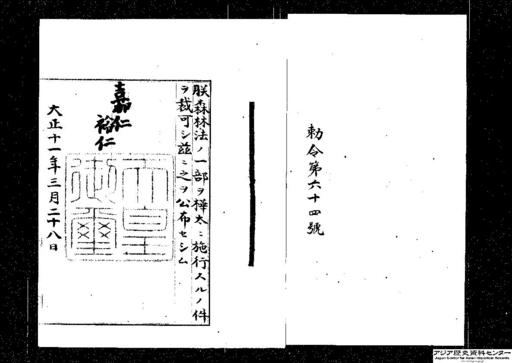 勅令第六十四號
朕森林法ノ一部ヲ樺太ニ施行スルノ件
ヲ裁可シ茲ニ之ヲ公布セシム
嘉仁
裕仁
天皇
御璽
大正十一年三月二十八日
アジア歴史資料センター
Japan Center for Asian Historical Records